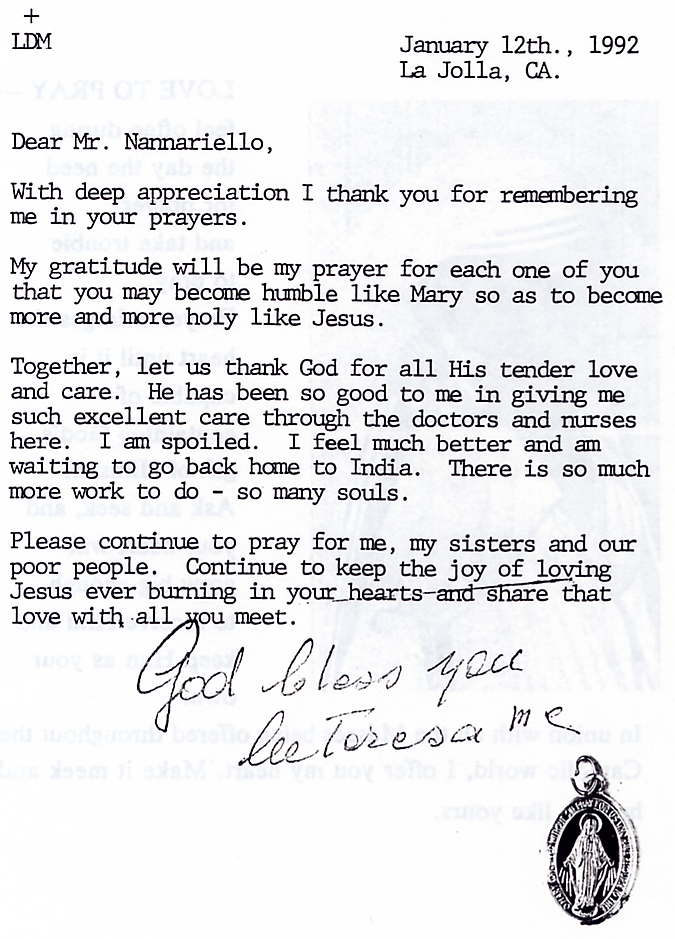 +
LDM
January 12th., 1992
La Jolla, CA.
Dear Mr. Nannariello,
With deep appreciation I thank you for remembering
me in your prayers.
My gratitude will be my prayer for each one of you
that you may become humble like Mary so as to become
more and more holy like Jesus.
Together, let us thank God for all His tender love
and care. He has been so good to me in giving me
such excellent care through the doctors and nurses
here. I am spoiled. I feel much better and am
waiting to go back home to India. There is so much
more work to do - so many souls.
Please continue to pray for me, my sisters and our
poor people. Continue to keep the joy of loving
Jesus ever burning in your hearts and share that
love with all you meet.
God bless you
Teresa mc